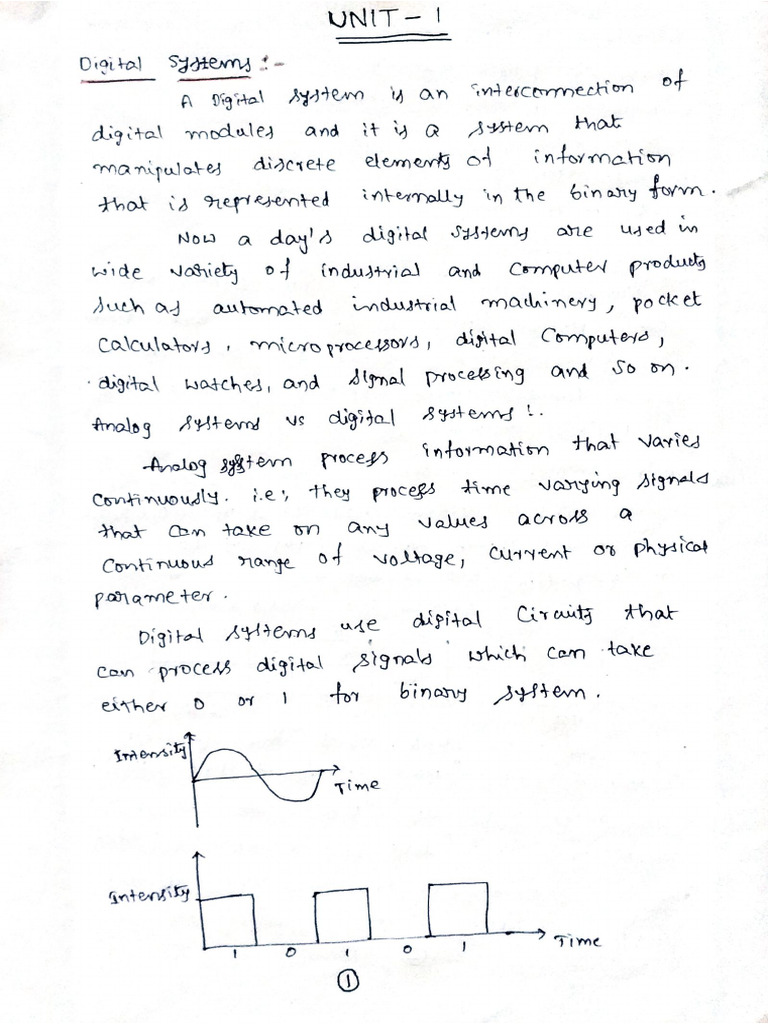 UNIT - 1
Digital Systems :-
A Digital system is an interconnection of
digital modules and it is a system that
manipulates discrete elements of information
that is represented internally in the binary form.
Now a day's digital systems are used in
wide variety of industrial and computer products
such as automated industrial machinery, pocket
calculators, microprocessors, digital computers,
digital watches, and signal processing and so on.
Analog systems vs digital systems :.
Analog system process information that varies
continuously. i.e; they process time varying signals
that can take on any values across a
continuous range of voltage, current or physical
parameter.
Digital systems use digital circuits that
can process digital signals which can take
either 0 or 1 for binary system.
Intensity
Time
Intensity
1 0 1 0 1
Time
1